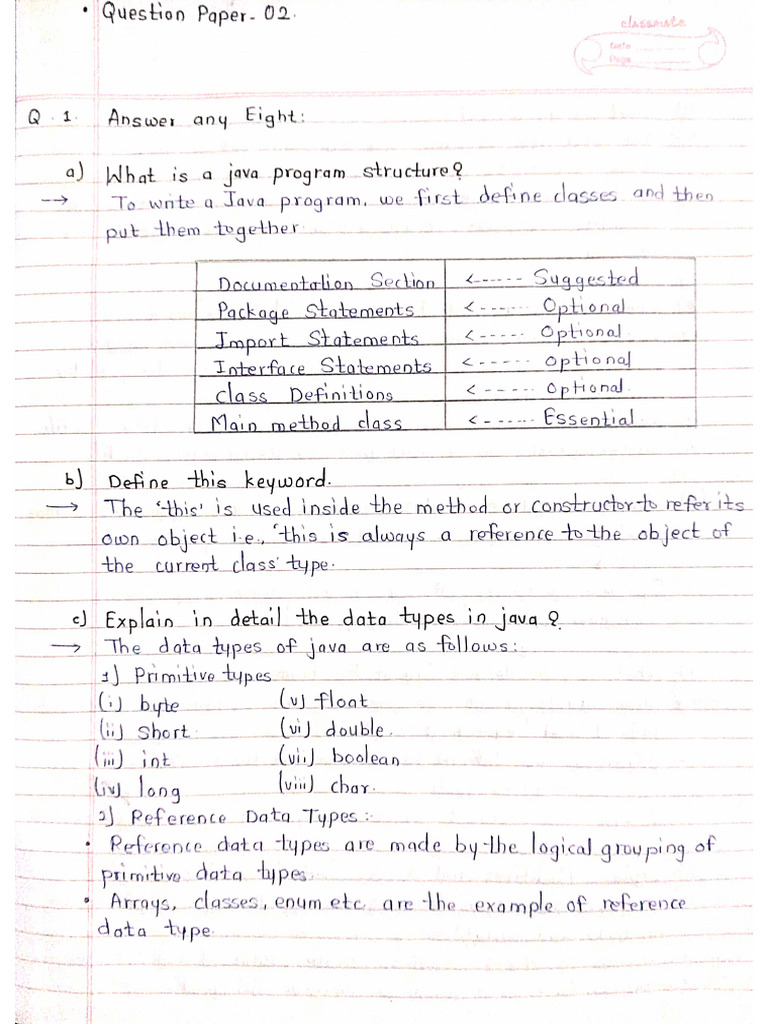 • Question Paper-02.
classmate
Date
Page
Q.1. Answer any Eight:
a) What is a java program structure?
→ To write a Java program, we first define classes and then
put them together
Documentation Section <------ Suggested
Package Statements <------ Optional
Import Statements <------ Optional
Interface Statements <------ Optional
Class Definitions <------ Optional
Main method class <------ Essential
b) Define this keyword.
→ The 'this' is used inside the method or constructor to refer its
own object i.e., 'this is always a reference to the object of
the current class' type.
c) Explain in detail the data types in java?
→ The data types of java are as follows:
1) Primitive types
(i) byte (v) float
(ii) Short (vi) double.
(iii) int (vii) boolean
(iv) long (viii) char.
2) Reference Data Types:
• Reference data types are made by the logical grouping of
primitive data types.
• Arrays, classes, enum etc. are the example of reference
data type.